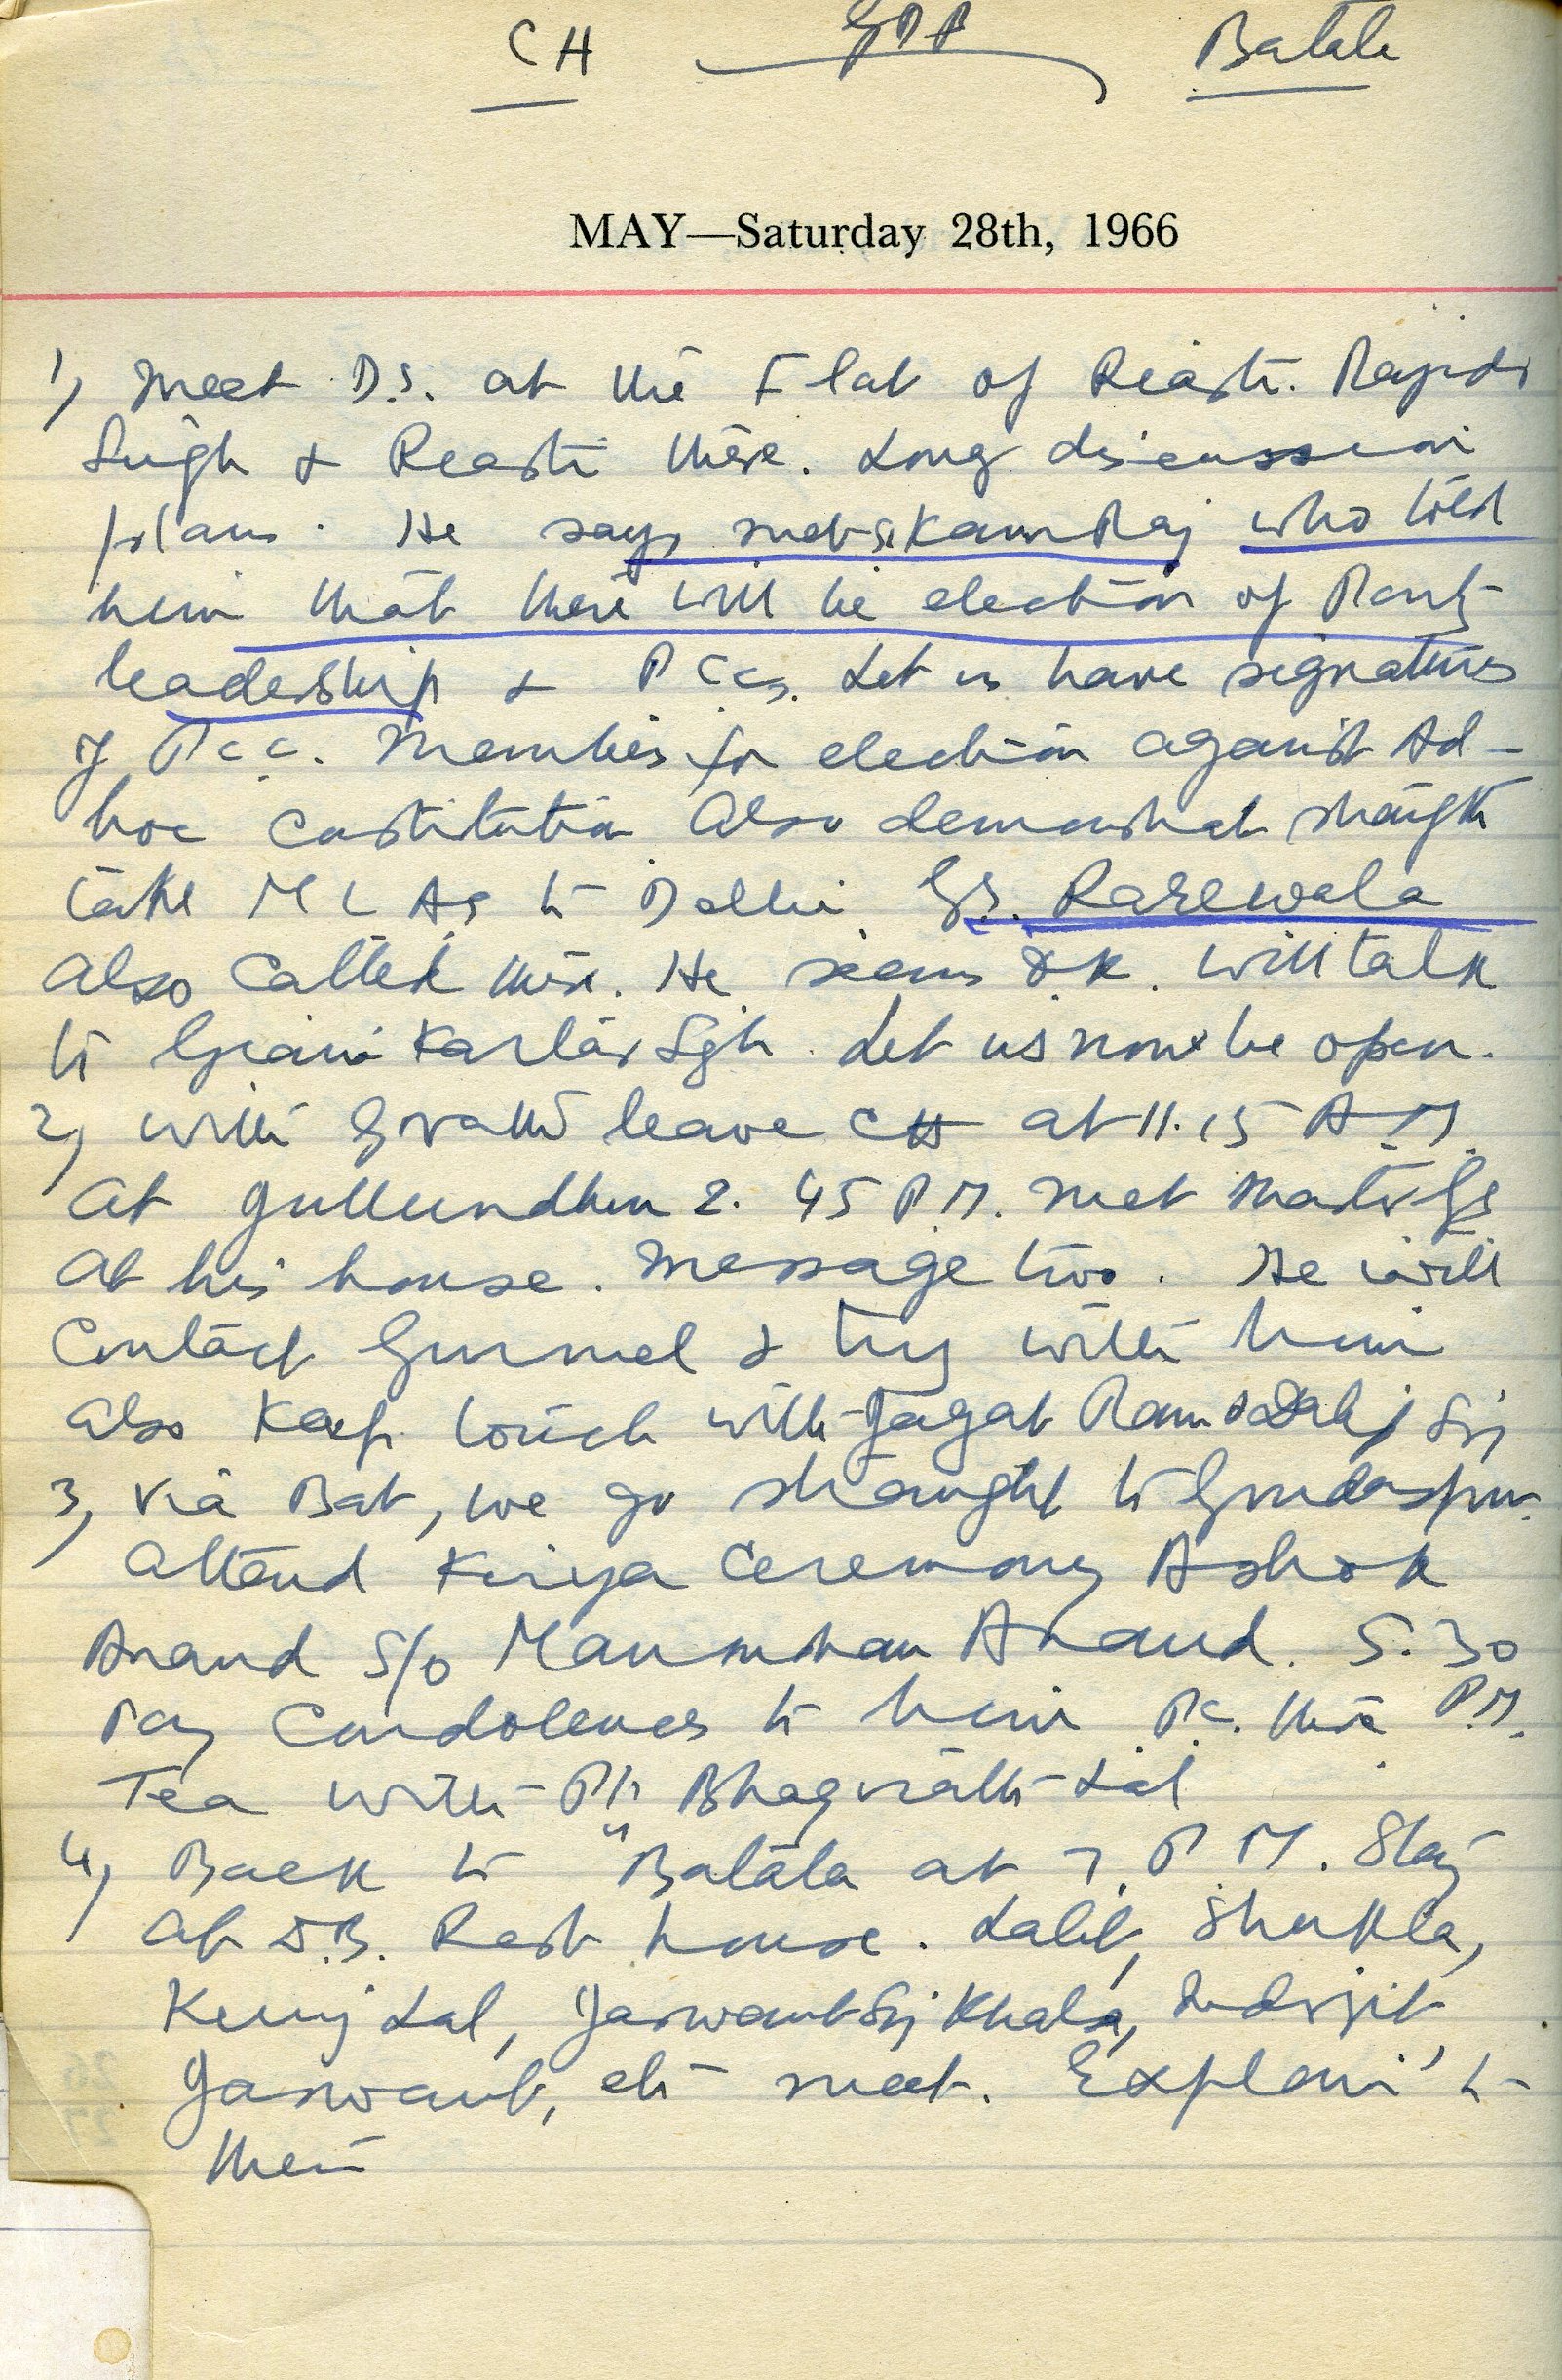 CH GDP Batala
MAY—Saturday 28th, 1966
1) Meet D.S. at the Flat of Reasti.
Singh & Reasti there. Long discussion
plans. He says met Kamraj who told
him that there will be election of Party
leadership & PCCs. Let us have signatures
of PCC. Members for election against Ad-
hoc Constitution Also demonstrat
take MLAs to Delhi GS. Rarewala
also called there. He seems O.K. will talk
to Giani Kartar Sgh. Let us now be open.
2) with leave CH at 11.15 A.M.
at Jullundhur 2.45 P.M. met Master GS
at his house. Message too. He will
Contact Gurmel & try with him
also Keep touch with Jagat Ram &
3) via Bat, we go straight to Gurdaspur.
attend Kirya Ceremony Ashok
Anand S/o Manmohan Anand. 5.30
Pay Condolences to him P.C. there P.M.
Tea with Pt Lal
4) Back to "Batala at 7 P.M. Stay
at D.B. Rest house. Lalit, Shukla,
Kunj Lal, Jaswant Sij Khala, Indrjit
Jaswant, etc meet. Explain to
them